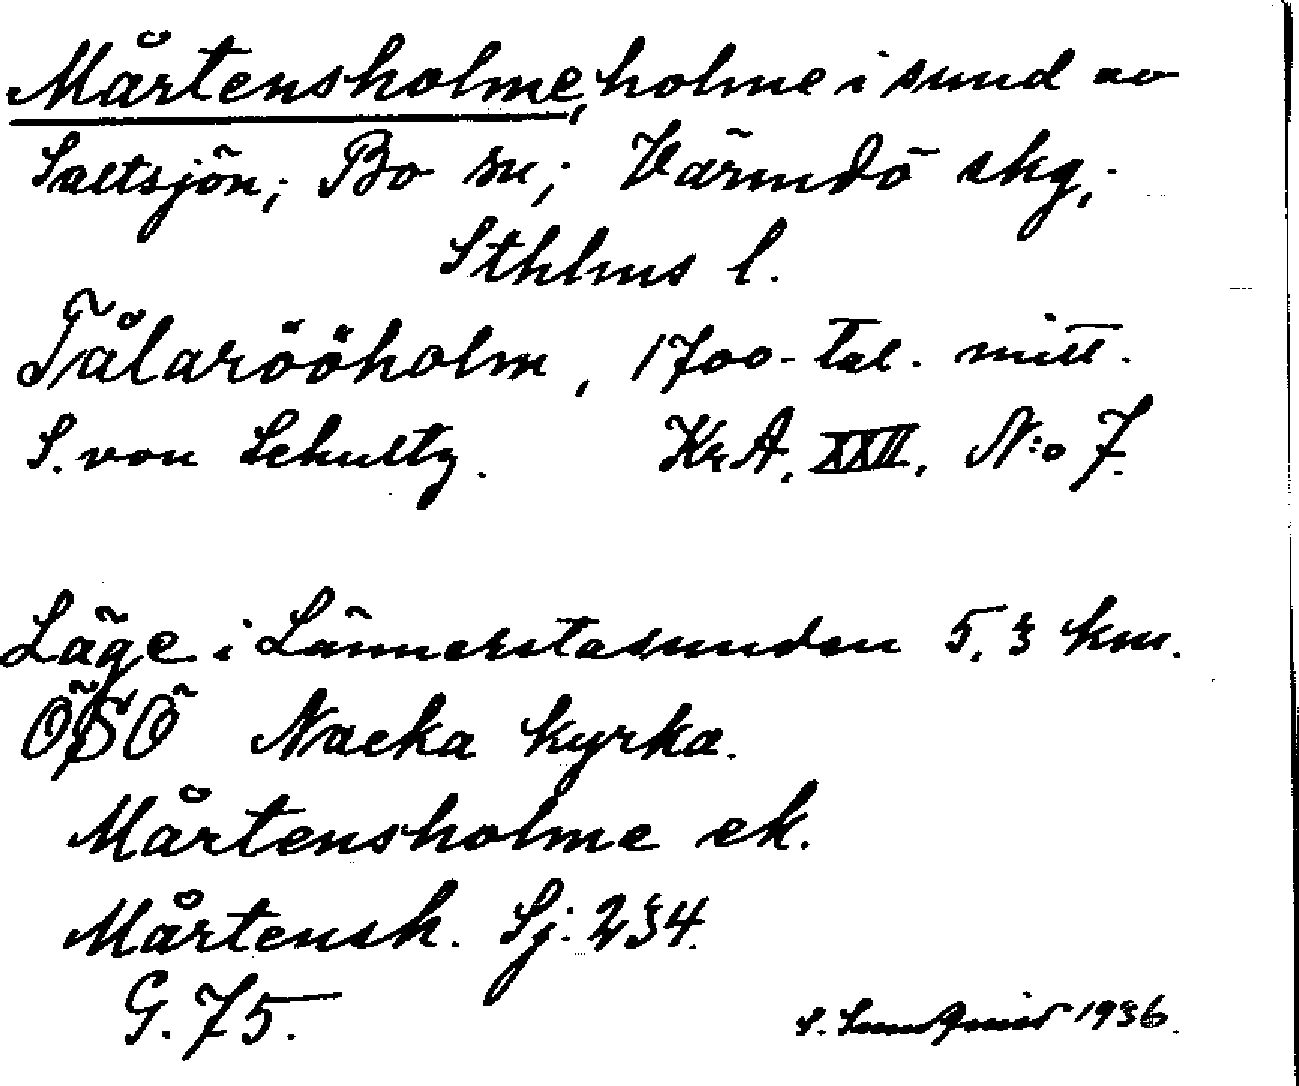 Mårtensholme, holme i sund av
Saltsjön; Bo sn; Värmdö skg,
Sthlms l.
Tålarööholm, 1700-tal. mitt.
S. von Schultz. KrA. XXII. N:o 7.
Läge i Lännerstasunden 5,3 km.
ÖSÖ Nacka kyrka.
Mårtensholme ek.
Mårtensh. Sj: 234.
G. 75.
S. 1936.